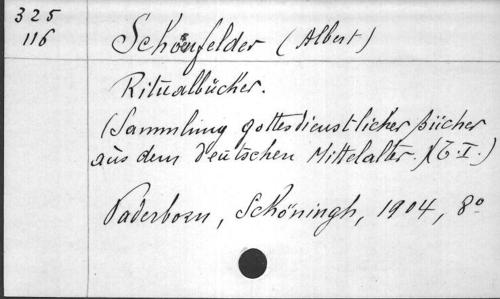 325
116
Schönfelder (Albert)
Ritualbücher.
(Sammlung gottesdienstlicher Bücher
aus dem deutschen Mittelalter.) (T. I.)
Paderborn, Schöningh, 1904, 8°